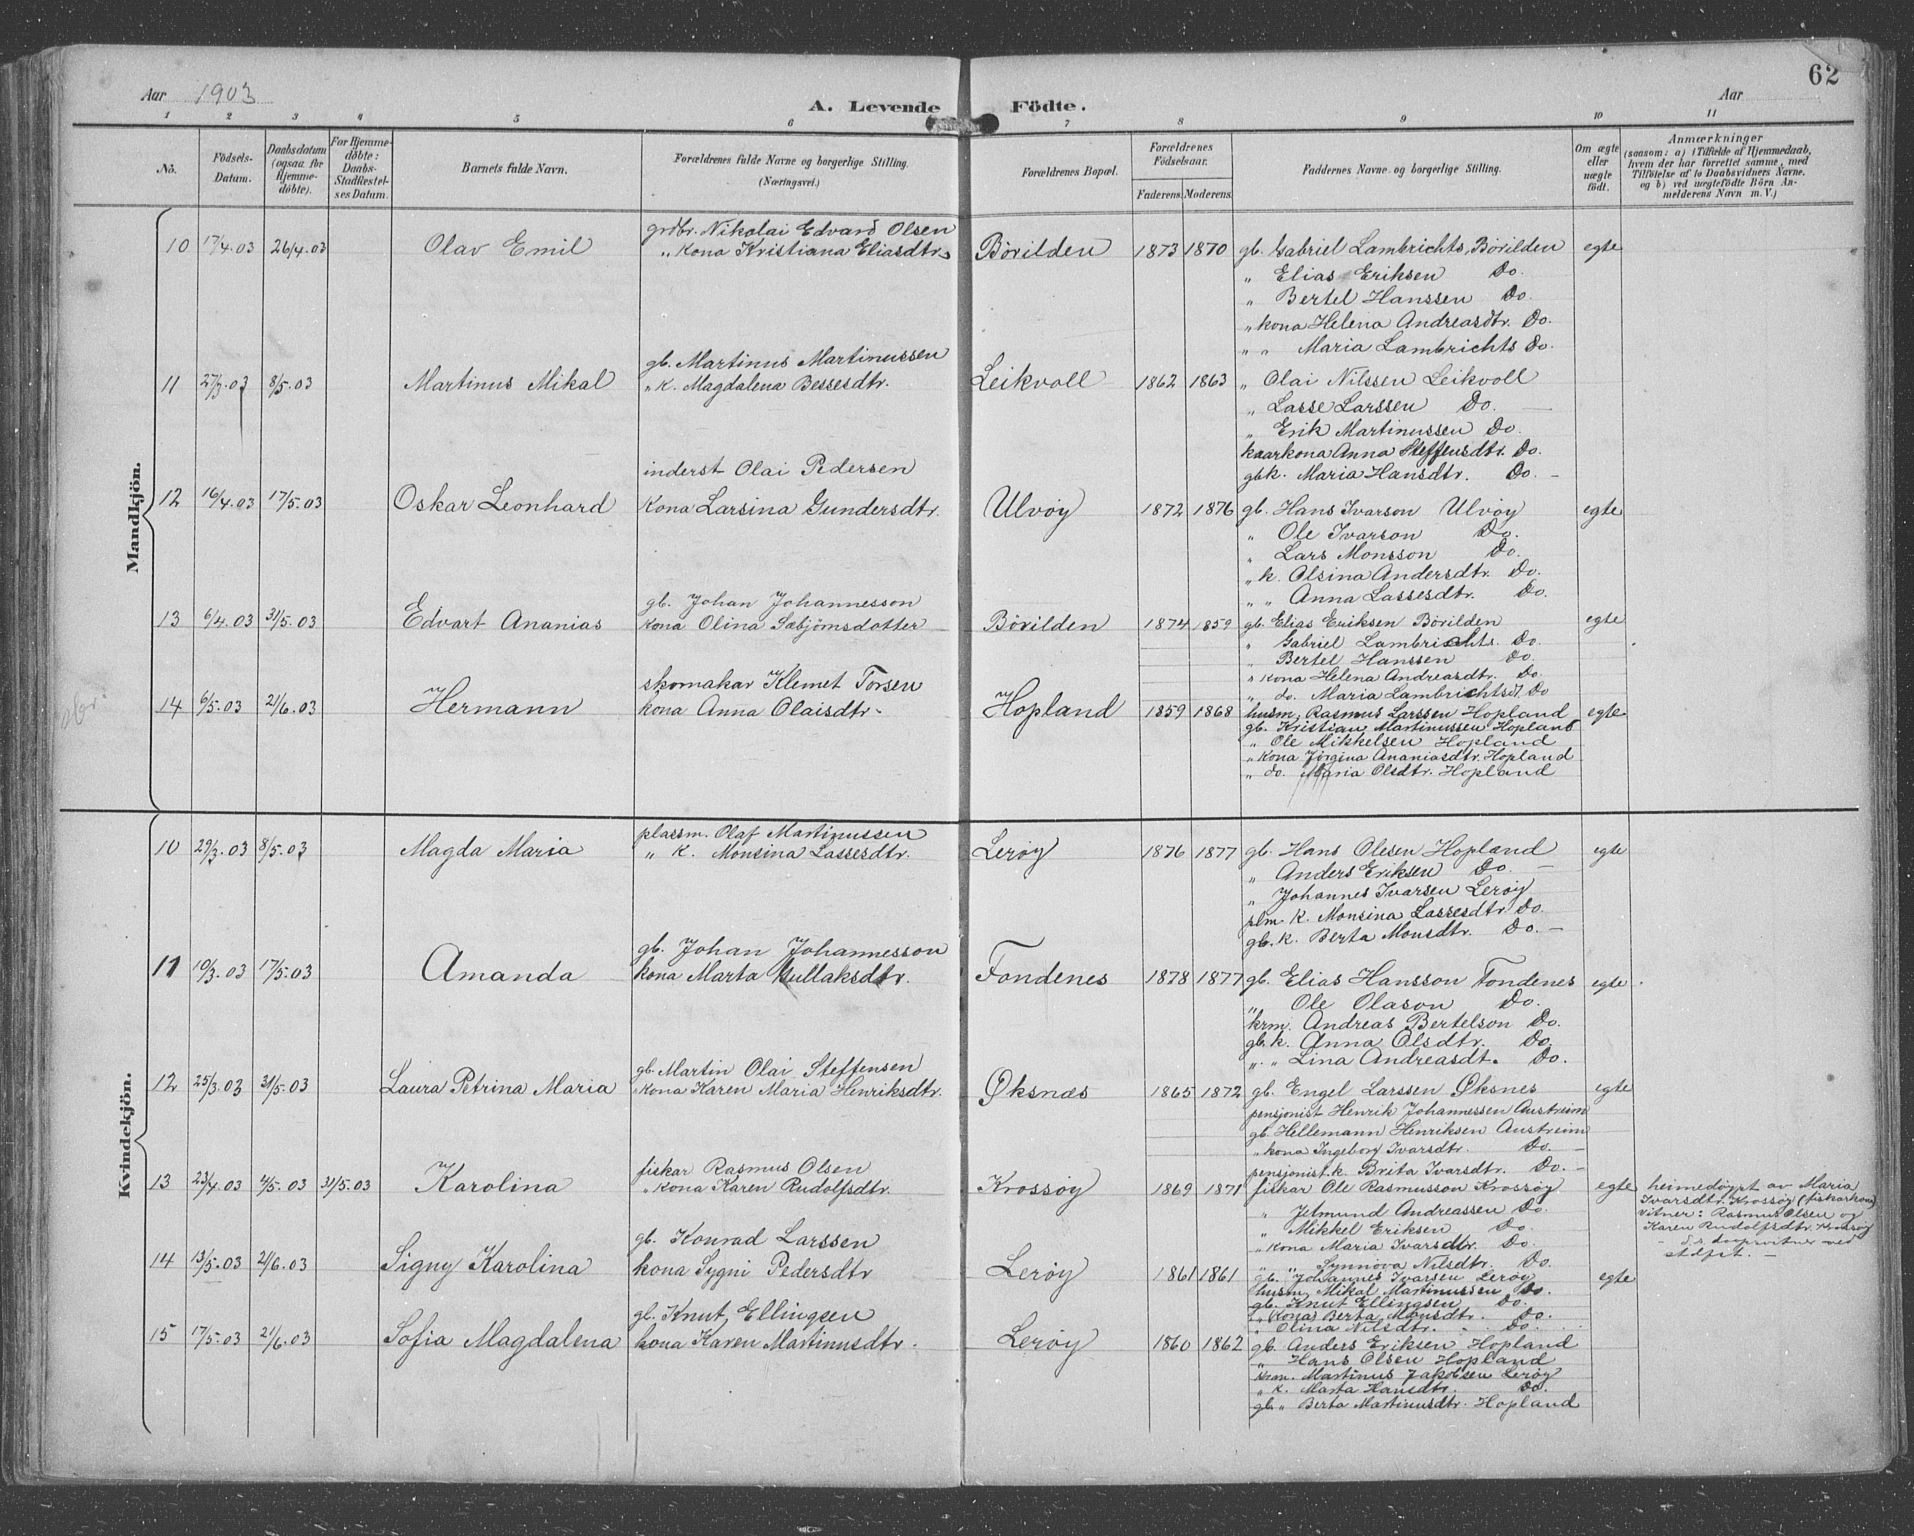 62
Aar 1903
A. Levende Födte.
Aar
1 2 3 4 5 6 7 8 9 10 11
No.
Födsels-Datum.
Daabsdatum (ogsaa for Hjemme-döbte).
For Hjemme-döbte: Daabs-Stadfæstel-ses Datum.
Barnets fulde Navn.
Forældrenes fulde Navne og borgerlige Stilling. (Næringsvei.)
Forældrenes Bopæl.
Forældrenes Födselsaar.
Faderens. Moderens.
Faddernes Navne og borgerlige Stilling.
Om ægte eller uægte födt.
Anmærkninger
(saasom: a) i Tilfælde af Hjemmedaab,
hvem der har forrettet samme, med
Tilföielse af to Daabsvidners Navne.
og b) ved uægtefödte Börn An-
melderens Navn m. V.)
Mandkjön.
grdbr. Nikolai Edvard Olsen
10 17/4.03 26/4.03 Olav Emil „ kona Kristiana Eliasdtr. Börilden 1873 1870 gb. Gabriel Lambrichts. Börilden egte
„ Elias Eriksen Do.
„ Bertel Hanssen Do.
„ kona Helena Andreasdtr. Do.
„ „ Maria Lambrichts Do.
gb. Martinus Martinussen
11 27/3.03 8/5.03 Martinus Mikal „ k. Magdalena Bessesdtr. Leikvoll 1862 1863 „ Olai Nilssen Leikvoll
„ Lasse Larssen Do.
„ Erik Martinussen Do.
kaarkona Anna Steffensdtr. Do.
inderst Olai Pedersen
gbk. Maria Hansdtr. Do. -
12 16/4.03 17/5.03 Oskar Leonhard Kona Larsina Gundersdtr. Ulvöy 1872 1876 gb. Hans Ivarson Ulvöy egte
„ Ole Ivarson Do.
„ Lars Monsson Do.
„ k. Olsina Andersdtr. Do.
„ „ Anna Lassesdtr. Do.
gb. Johan Johannesson
13 6/4.03 31/5.03 Edvart Ananias kona Olina Sæbjömsdotter Börilden 1874 1859 gb. Elias Eriksen Börilden egte
„ Gabriel Lambrichts. Do.
„ Bertel Hanssen Do.
„ kona Helena Andreasdtr. Do.
„ do. Maria Lambrichtsd. Do
skomakar Klemet Torsen
14 6/5.03 21/6.03 Hermann kona Anna Olaisdtr. Hopland 1859 1868 husm. Rasmus Larssen Hopland egte
gb. Kristian Martinussen Hopland
„ Ole Mikkelsen Hopland
„ kona Jörgina Ananiasdtr. Hopland
„ do. Maria Olsdtr. Hopland
Kvindekjön.
plassm. Olaf Martinussen
10 29/3.03 8/5.03 Magda Maria „ k. Monsina Lassesdtr. Leröy 1876 1877 gb. Hans Olesen Hopland egte
„ Anders Eriksen Do. -
„ Johannes Ivarsen Leröy
plm. k. Monsina Lassesdtr. Do.
gb. k. Berta Monsdtr. Do. -
gb. Johan Johannesson
11 19/3.03 17/5.03 Amanda kona Marta Gullaksdtr. Fondenes 1878 1877 gb. Elias Hansson Fondenes egte
„ Ole Olason Do.
krm. Andreas Bertelson Do.
gb.k. Anna Olsdtr. Do.
„ „ Lina Andreasdt. Do.
gb. Martin Olai Steffensen
12 25/3.03 31/5.03 Laura Petrina Maria „ kona Karen Maria Henriksdtr. Öksnæs 1865 1872 gb. Engel Larssen Öksnes egte
pensjonist Henrik Johannessen Austreim
gb. Hellemann Henriksen Austreim
„ kona Ingeborg Ivarsdtr. Do. -
pensjonist.k. Brita Ivarsdtr. Do. -
fiskar Rasmus Olsen
13 23/4.03 4/5.03 31/5.03 Karolina „ kona Karen Rudolfsdtr. Krossöy 1869 1871 fiskar Ole Rasmusson Krossöy egte
„ Jelmund Andreassen Do.
„ Mikkel Eriksen Do.
„ kona Maria Ivarsdtr. Do.
„ „ Synnöva Nilsdtr. Do.
heimedöypt av Maria
Ivarsdtr. Krossöy (fiskarkona)
Vitner: Rasmus Olsen og
Karen Rudolfsdtr. Krossöy
gb. Konrad Larssen
14 13/5.03 21/6.03 Signy Karolina kona Sygni Pedersdtr Leröy 1861 1861 gb. Johannes Ivarsen Leröy egte
husm. Mikal Martinussen Do.
gb. Knut Ellingsen Do.
„ Kona Berta Monsdtr. Do.
„ Olina Nilsdtr. Do.
gb. Knut Ellingsen
15 17/5.03 21/6.03 Sofia Magdalena kona Karen Martinusdtr. Leröy 1860 1862 gb. Anders Eriksen Hopland
„ Hans Olsen Hopland
krm. Martinus Jakobsen Leröy
„ k. Marta Hansdtr. Do.
gb „ Berta Martinusdtr. Hopland